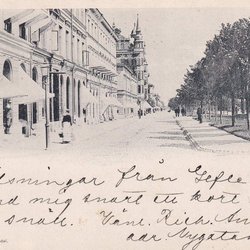 lsningar från Gefle
nd mig snart ett kort
snäll. Vänl. Rich. An
adr. Nygatan